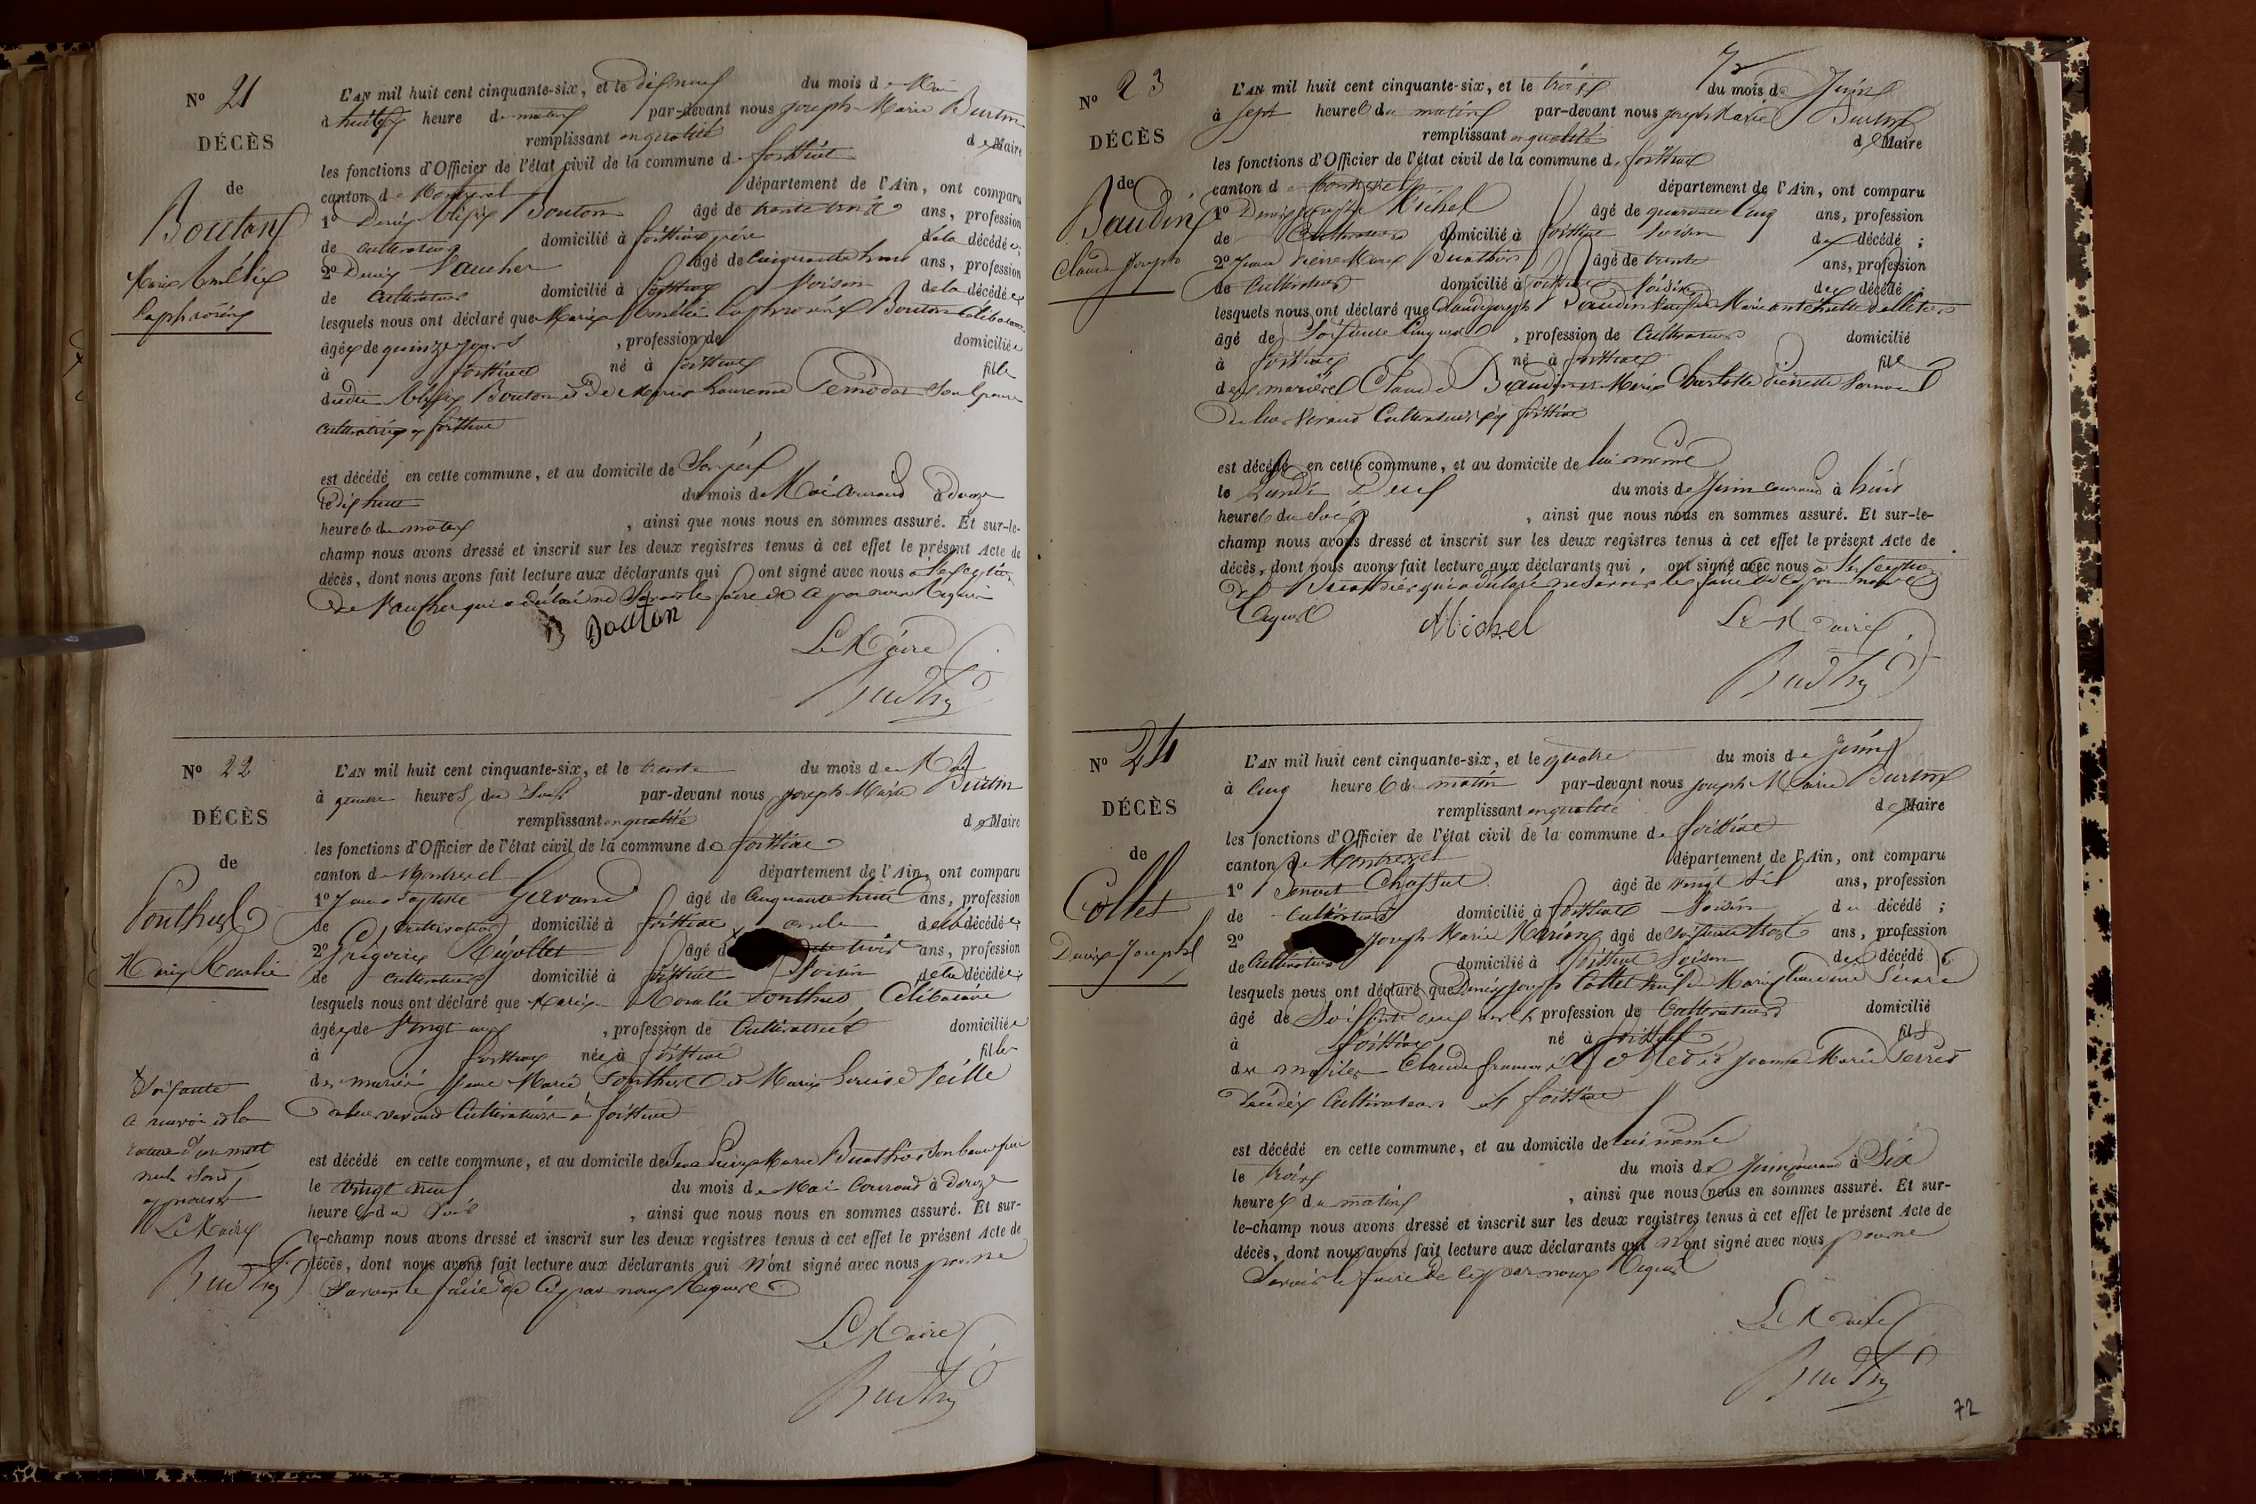 N° 21
DÉCÈS
de
Bouton
Marie Amélie
L'AN mil huit cent cinquante-six, et le dix neuf du mois de Mai
à huit heure du matin par-devant nous Joseph Marie Burtin
remplissant en qualité de Maire
les fonctions d'Officier de l'état civil de la commune de foissiat
canton de Montrevel département de l'Ain, ont comparu
1° Denis Bouton âgé de trente trois ans, profession
de cultivateur domicilié à foissiat père de la décédée
2° Denis Vaucher âgé de Cinquante ans, profession
de Cultivateur domicilié à foissiat Voisin de la décédée
lesquels nous ont déclaré que Marie Amélie Bouton Célibataire
âgée de quinze jours, profession de domiciliée
à foissiat né à foissiat fille
Bouton et de Marie
cultivateurs à foissiat
est décédé en cette commune, et au domicile de Son père
le dix huit du mois de Mai courant à douze
heures du matin, ainsi que nous nous en sommes assuré. Et sur-le-
champ nous avons dressé et inscrit sur les deux registres tenus à cet effet le présent Acte de
décès, dont nous avons fait lecture aux déclarants qui ont signé avec nous à l'exception
de Vaucher qui a déclaré ne Savoir le faire de ce par nous Requis
Bouton
Le Maire
N° 22
DÉCÈS
de
Ponthus
Marie Roselie
L'AN mil huit cent cinquante-six, et le trente du mois de Mai
à heures du Soir par-devant nous Joseph Marie Burtin
remplissant en qualité de Maire
les fonctions d'Officier de l'état civil de la commune de foissiat
canton de Montrevel département de l'Ain, ont comparu
1° Jean Baptiste âgé de Cinquante huit ans, profession
de Cultivateur domicilié à foissiat oncle de la décédée
2° Grégoire âgé de trois ans, profession
de cultivateur domicilié à foissiat Voisin de la décédée
lesquels nous ont déclaré que Marie Roselie Ponthus Célibataire
âgée de Vingt ans, profession de Cultivatrice domiciliée
à foissiat née à foissiat fille
des mariés Jean Marie Ponthus et Marie Louise
de leur vivant Cultivateurs à foissiat
est décédé en cette commune, et au domicile de Jean Pierre Marie Buathier Son beau frère
le vingt neuf du mois de Mai Courant à douze
heures du Soir, ainsi que nous nous en sommes assuré. Et sur-
le-champ nous avons dressé et inscrit sur les deux registres tenus à cet effet le présent Acte de
décès, dont nous avons fait lecture aux déclarants qui n'ont signé avec nous pour ne
Savoir le faire de ce par nous Requis
Soixante
à renvoi et la
rature d'un mot
nul et son
approuvés
Le Maire
Le Maire
72
N° 23
DÉCÈS
de
Baudin
Claude Joseph
L'AN mil huit cent cinquante-six, et le trois du mois de Juin
à Sept heures du matin par-devant nous Joseph Marie Burtin
remplissant en qualité de Maire
les fonctions d'Officier de l'état civil de la commune de foissiat
canton de Montrevel département de l'Ain, ont comparu
1° Denis Joseph Michel âgé de quarante Cinq ans, profession
de Cultivateur domicilié à foissiat Voisin du décédé;
2° Jean Pierre Marie Buathier âgé de trente ans, profession
de Cultivateur domicilié à foissiat Voisin du décédé;
lesquels nous ont déclaré que Claude Joseph Baudin Veuf de Marie Antoinette
âgé de Soixante Cinq ans, profession de Cultivateur domicilié
à foissiat né à foissiat fils
des mariés Claude Baudin et Marie
de leur Vivant Cultivateurs à foissiat
est décédé en cette commune, et au domicile de lui même
le Lundi Deux du mois de Juin courant à huit
heures du Soir, ainsi que nous nous en sommes assuré. Et sur-le-
champ nous avons dressé et inscrit sur les deux registres tenus à cet effet le présent Acte de
décès, dont nous avons fait lecture aux déclarants qui ont signé avec nous à l'exception
de Buathier qui a déclaré ne Savoir le faire de ce par nous
Requis
Michel
Le Maire
N° 24
DÉCÈS
de
Collet
Denis Joseph
L'AN mil huit cent cinquante-six, et le quatre du mois de Juin
à Cinq heures du matin par-devant nous Joseph Marie Burtin
remplissant en qualité de Maire
les fonctions d'Officier de l'état civil de la commune de foissiat
canton de Montrevel département de l'Ain, ont comparu
1° Benoit Chossat âgé de vingt six ans, profession
de Cultivateur domicilié à foissiat Voisin du décédé;
2° Joseph Marie âgé de Soixante trois ans, profession
de Cultivateur domicilié à foissiat Voisin du décédé;
lesquels nous ont déclaré que Denis Joseph Collet Veuf de Marie Claudine
âgé de Soixante neuf ans, profession de Cultivateur domicilié
à foissiat né à foissiat fils
des mariés Claude Collet et Jeanne Marie
décédés Cultivateurs à foissiat
est décédé en cette commune, et au domicile de lui même
le trois du mois de Juin courant à Six
heures du matin, ainsi que nous nous en sommes assuré. Et sur-
le-champ nous avons dressé et inscrit sur les deux registres tenus à cet effet le présent Acte de
décès, dont nous avons fait lecture aux déclarants qui n'ont signé avec nous pour ne
Savoir le faire de ce par nous Requis
Le Maire
72